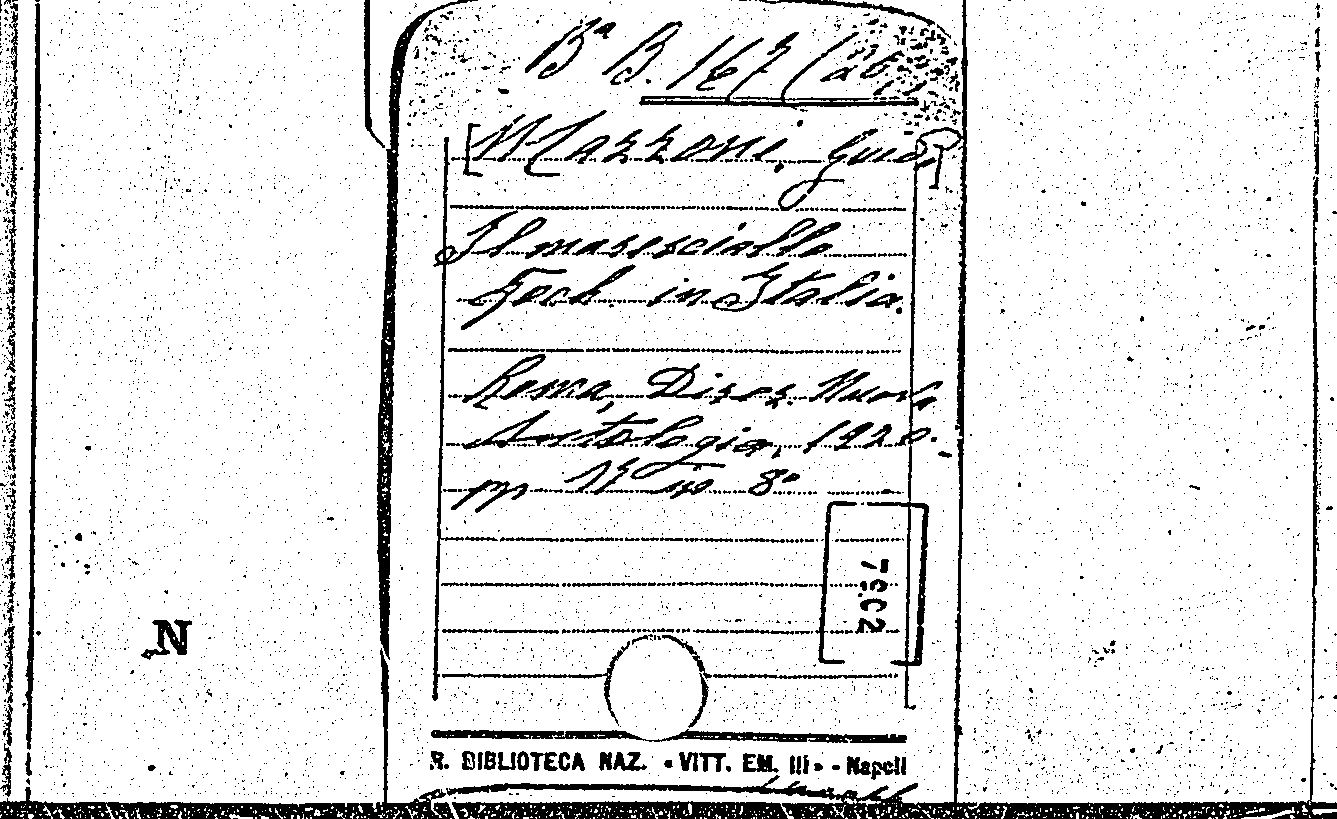 Bª B. 167 (26
[Mazzoni, Guido]
Il maresciallo
Foch in Italia.
Roma, Direz. Nuova
Antologia, 1920.
pp 15 in 8º
7902
N
R. BIBLIOTECA NAZ. «VITT. EM. III» - Napoli